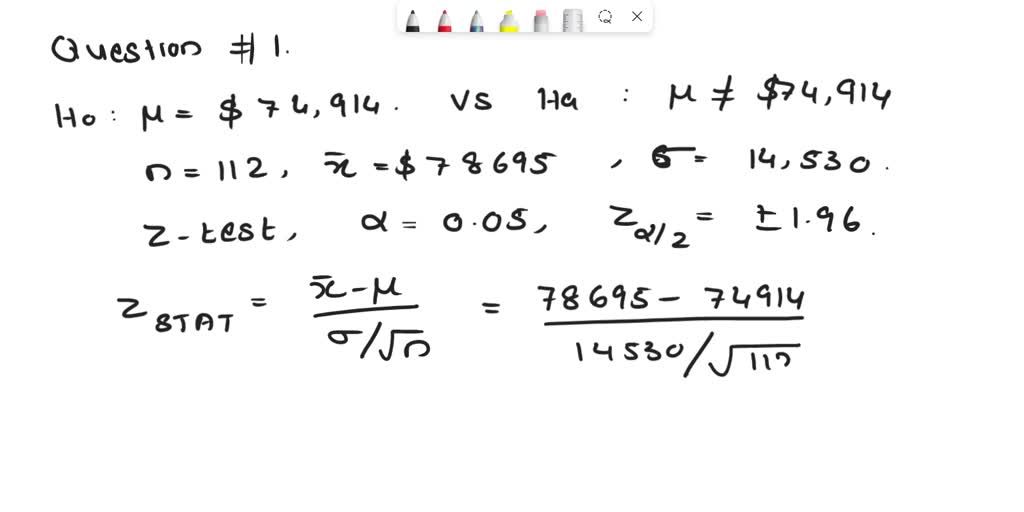 Question #1.
Ho: μ = $74,914. VS Ha: μ ≠ $74,914
n = 112, x̄ = $78695, σ = 14,530.
Z-test, α = 0.05, Zα/2 = ±1.96.
ZSTAT = x̄-μ / σ/√n = 78695 - 74914 / 14530/√112